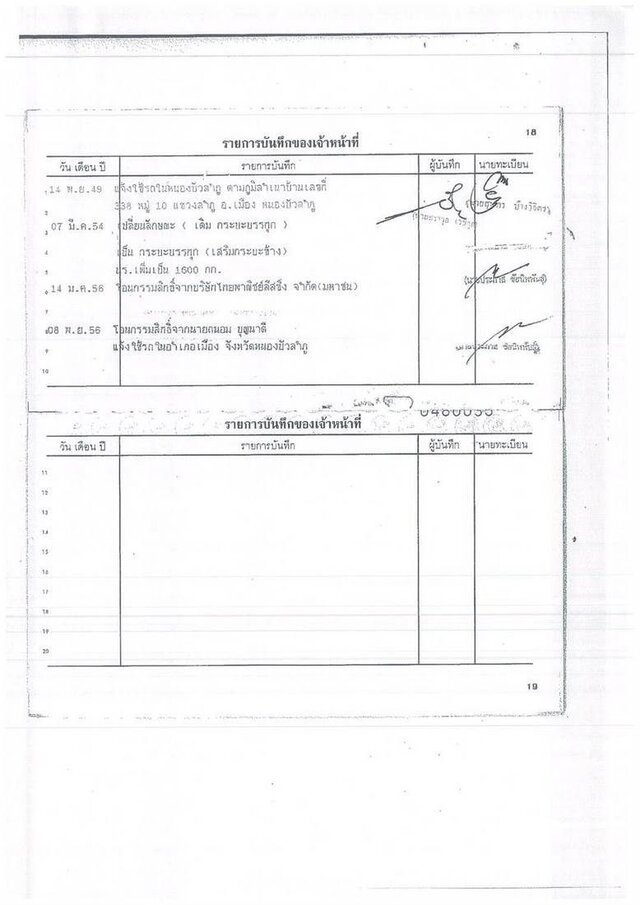 18
รายการบันทึกของเจ้าหน้าที่
วัน เดือน ปี รายการบันทึก ผู้บันทึก นายทะเบียน
14 พ.ย.49 แจ้งใช้รถในหนองบัวลำภู ตามภูมิลำเนาบ้านเลขที่
2 338 หมู่ 10 แขวงลำภู อ.เมือง หนองบัวลำภู
3 07 มี.ค.54 เปลี่ยนลักษณะ ( เดิม กระบะบรรทุก )
4 เป็น กระบะบรรทุก (เสริมกระบะข้าง)
5 นร.เพิ่มเป็น 1600 กก.
6 14 ม.ค.56 โอนกรรมสิทธิ์จากบริษัทไทยพาณิชย์ลีสซิ่ง จำกัด(มหาชน)
8 08 พ.ย.56 โอนกรรมสิทธิ์จากนายถนอม
9 แจ้งใช้รถในอำเภอเมือง จังหวัดหนองบัวลำภู
10
รายการบันทึกของเจ้าหน้าที่
วัน เดือน ปี รายการบันทึก ผู้บันทึก นายทะเบียน
11
12
13
14
15
16
17
18
19
20
19